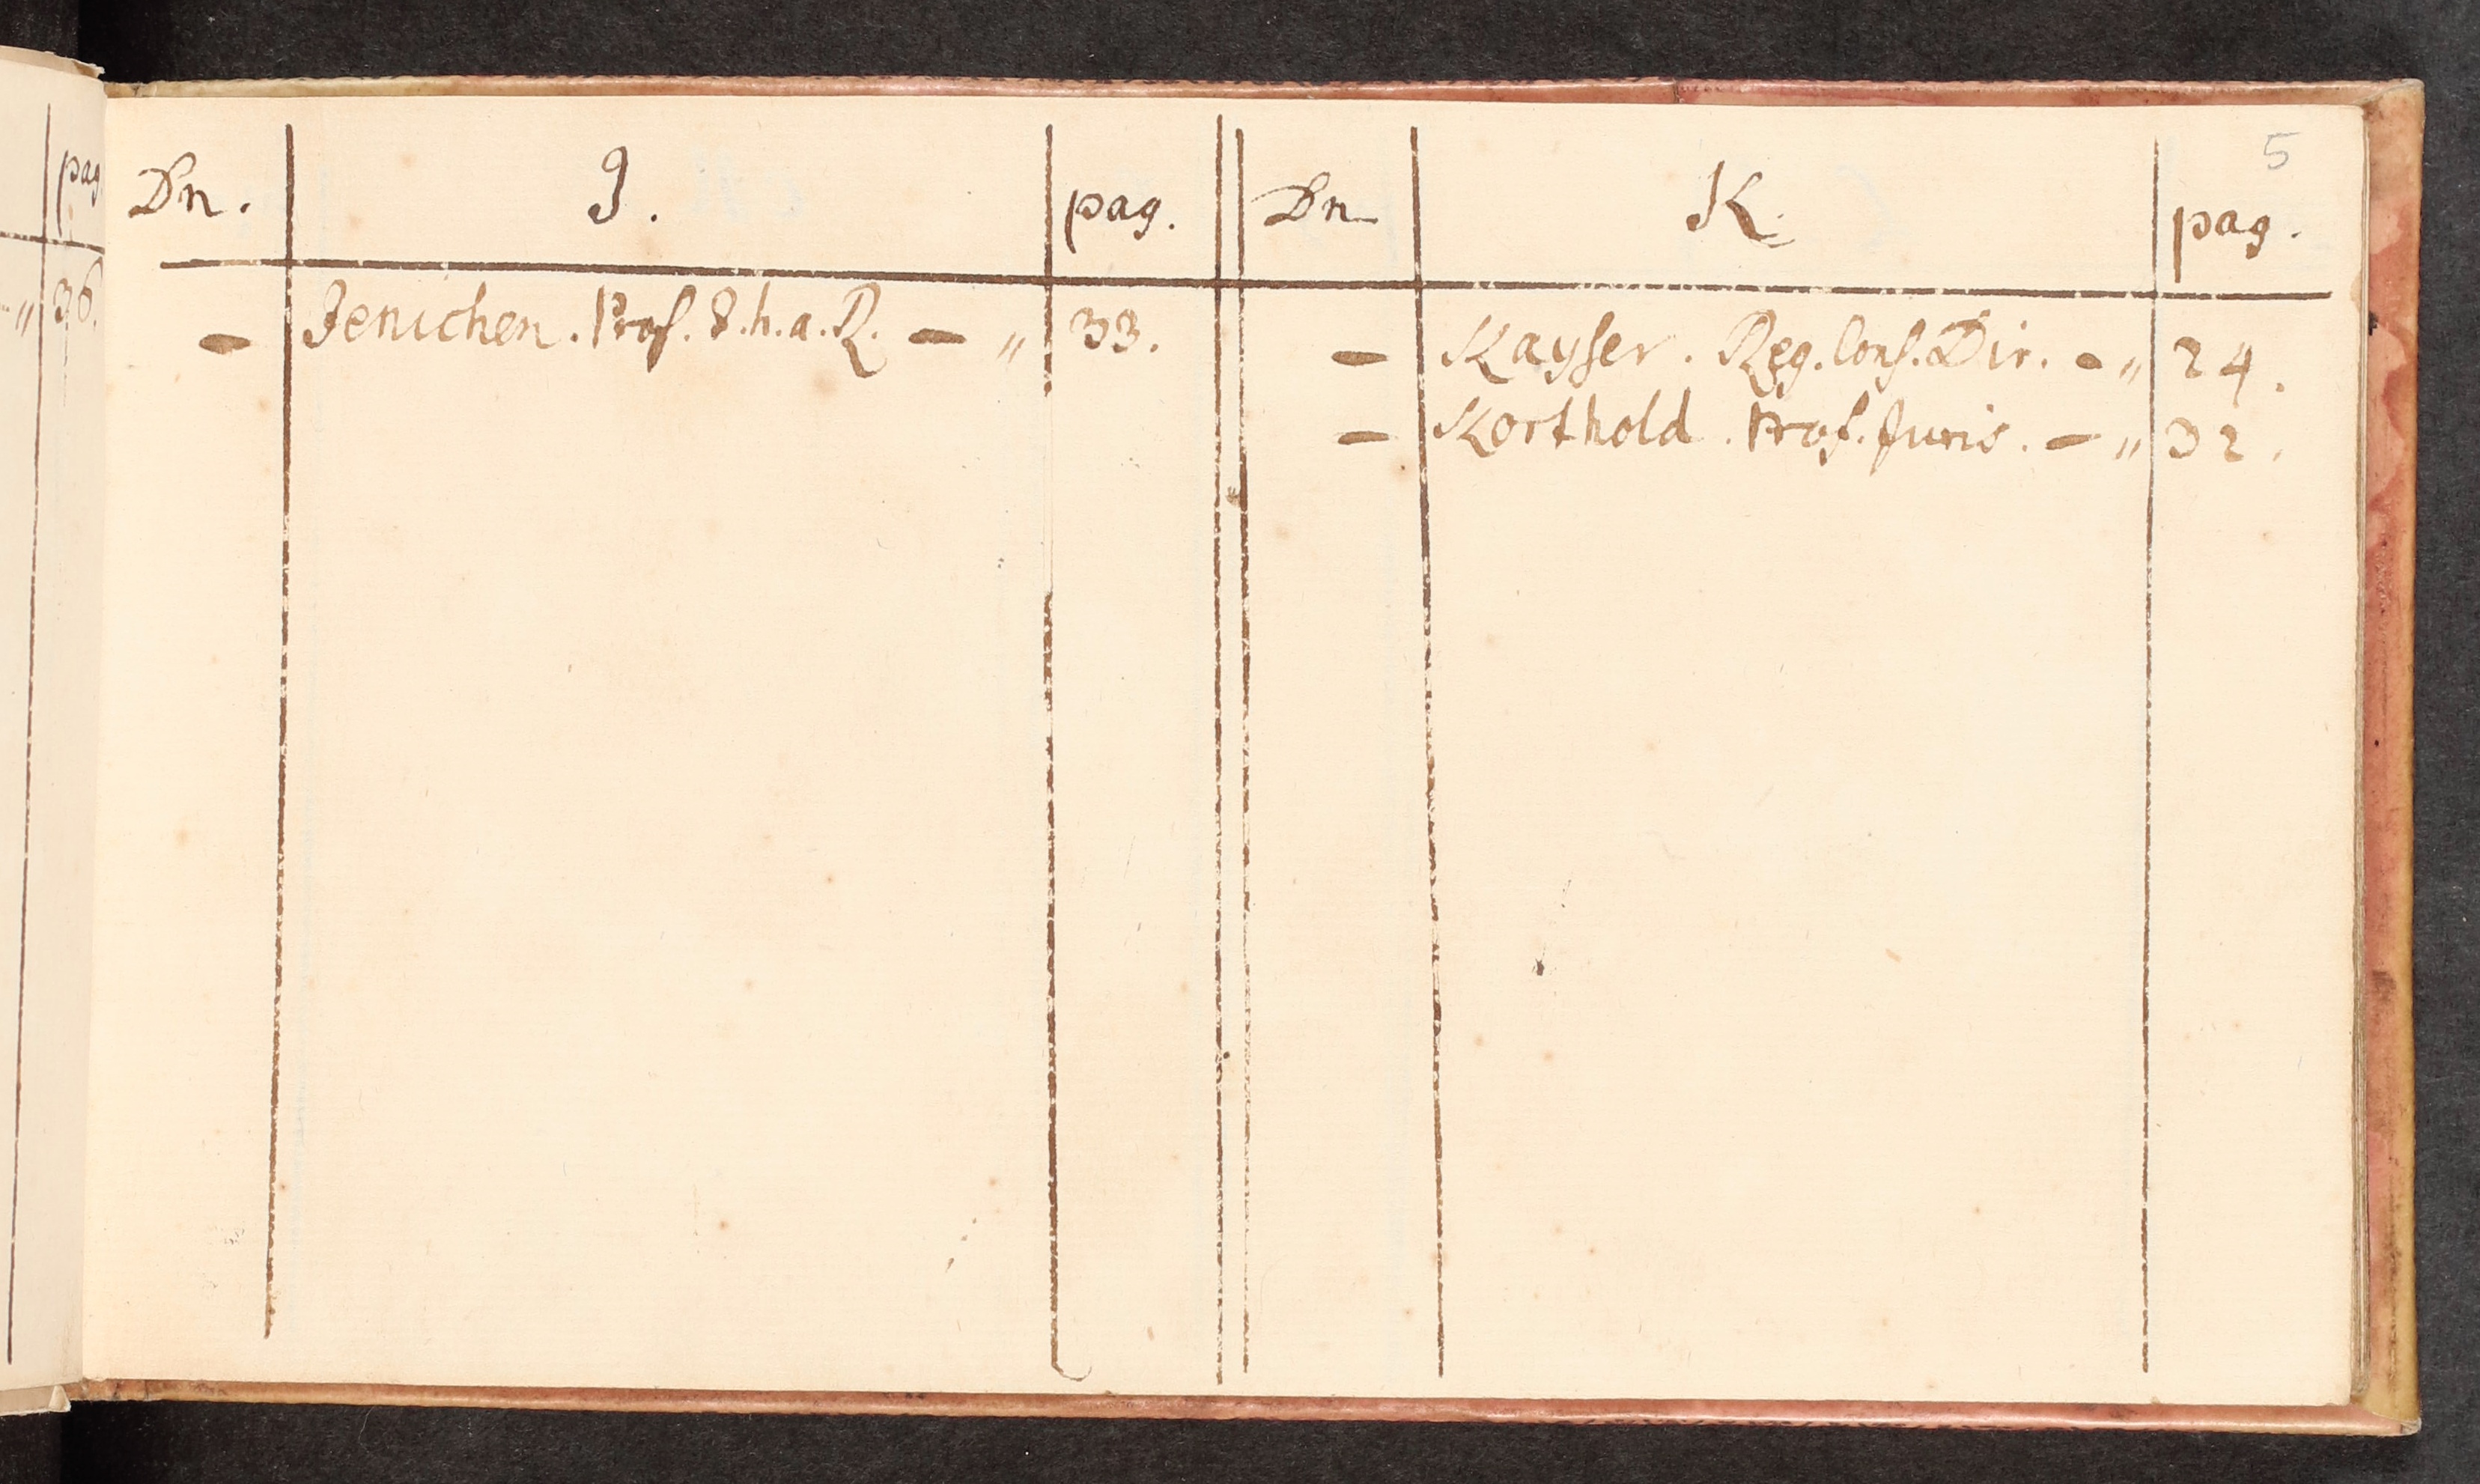 pag.
" 36.
5
Dn. J. pag.
– Jenichen. Prof. J.h.a.R. – " 33.
Dn K. pag.
– Kayser. Reg. Cons. Dir. – " 24.
– Korthold. Prof. Juris. – " 32.